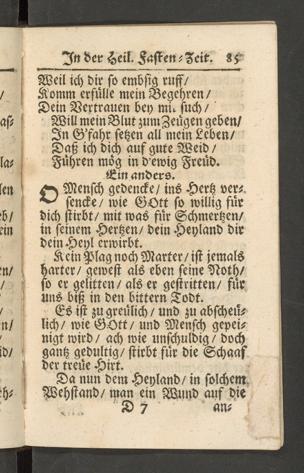 In der Heil. Fasten-Zeit. 85
Weil ich dir so embsig ruff/
Komm erfülle mein Begehren/
Dein Vertrauen bey mi. such/
Will mein Blut zum Zeügen geben/
In G'fahr setzen all mein Leben/
Daß ich dich auf gute Weid/
Führen mög in d'ewig Freüd.
Ein anders.
O Mensch gedencke/ ins Hertz ver-
sencke/ wie GOtt so willig für
dich stirbt/ mit was für Schmertzen/
in seinem Hertzen/ dein Heyland dir
dein Heyl erwirbt.
Kein Plag noch Marter/ ist jemals
harter/ gewest als eben seine Noth/
so er gelitten/ als er gestritten/ für
uns biß in den bittern Todt.
Es ist zu greülich/ und zu abscheü-
lich/ wie GOtt/ und Mensch gepei-
nigt wird/ ach wie unschuldig/ doch
gantz gedultig/ stirbt für die Schaaf
der treüe Hirt.
Da nun dem Heyland/ in solchem
Wehstand/ man ein Wund auf die
D 7 an-